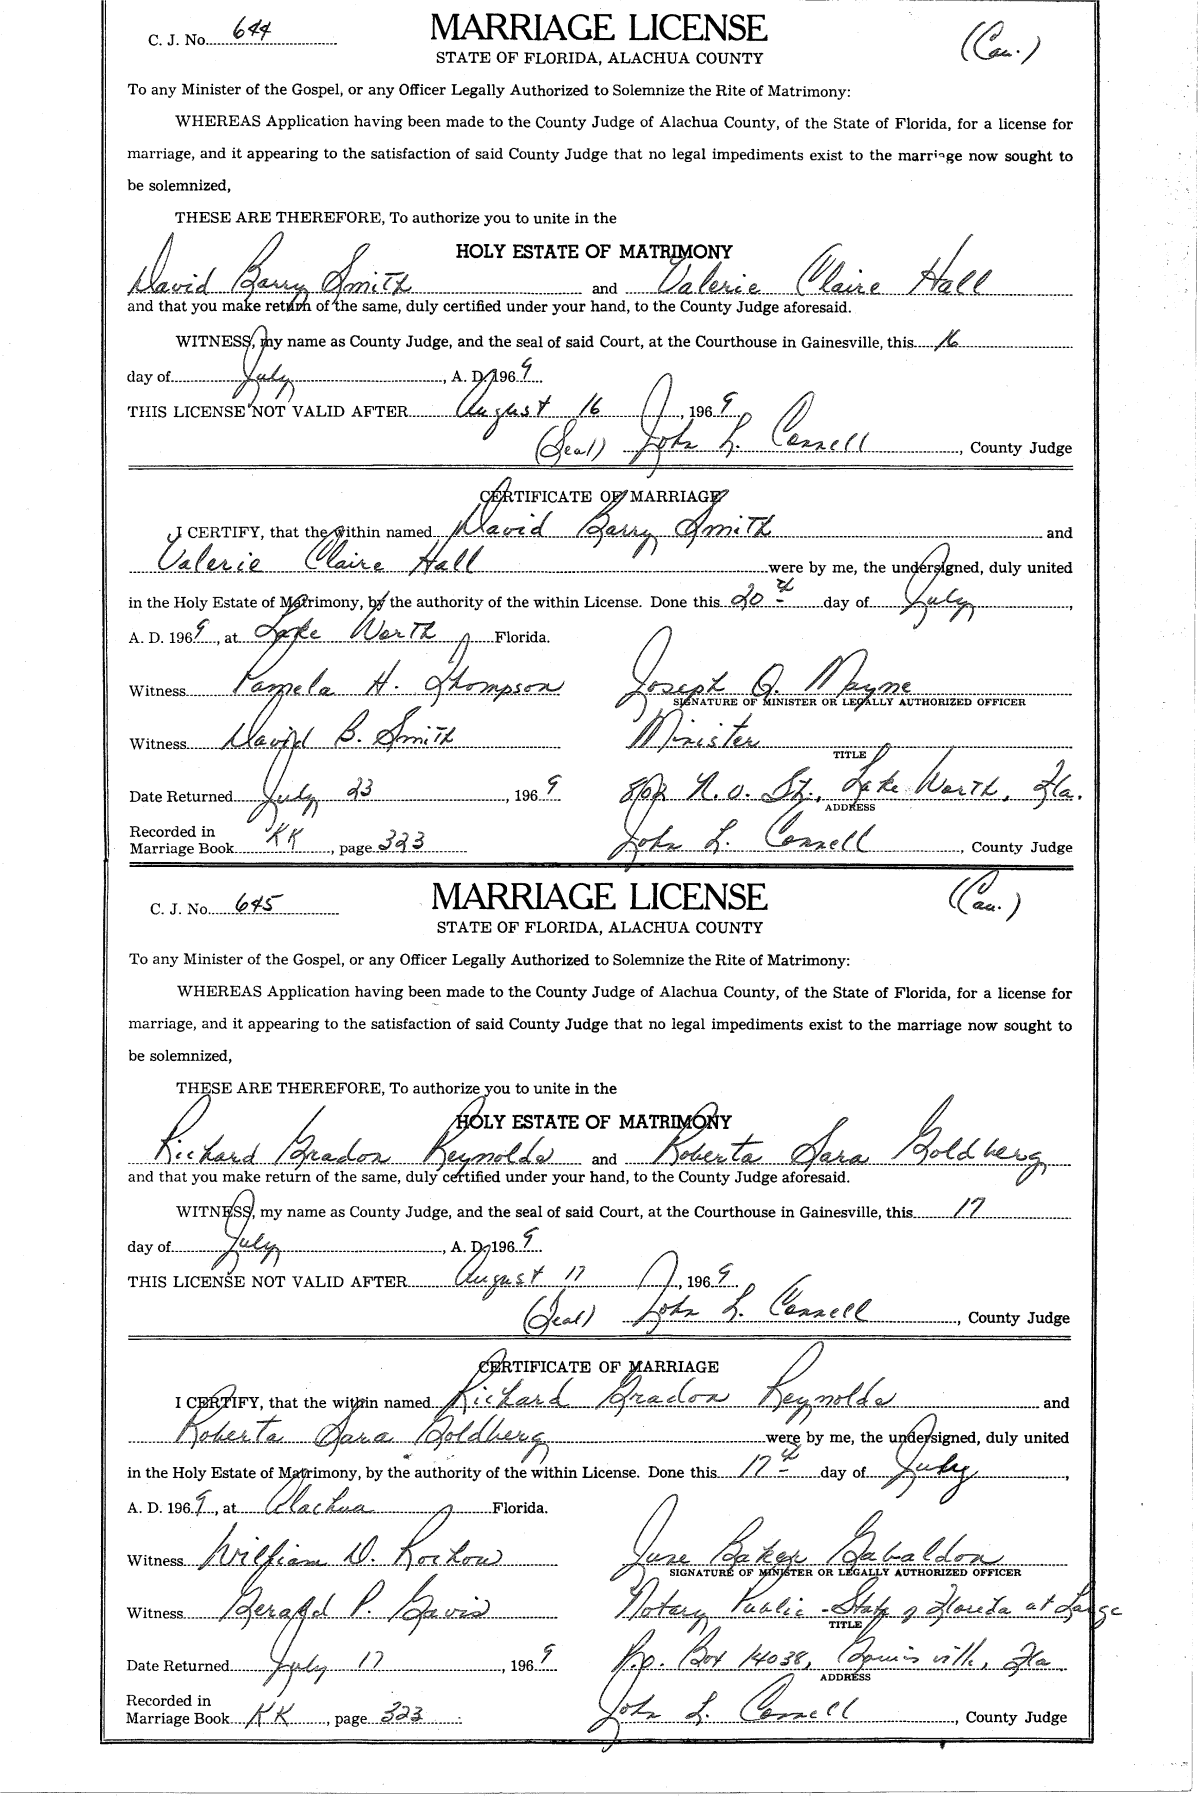 C. J. No. 644
MARRIAGE LICENSE
(Cau.)
STATE OF FLORIDA, ALACHUA COUNTY
To any Minister of the Gospel, or any Officer Legally Authorized to Solemnize the Rite of Matrimony:
WHEREAS Application having been made to the County Judge of Alachua County, of the State of Florida, for a license for
marriage, and it appearing to the satisfaction of said County Judge that no legal impediments exist to the marriage now sought to
be solemnized,
THESE ARE THEREFORE, To authorize you to unite in the
HOLY ESTATE OF MATRIMONY
David Barry Smith and Valerie Claire Hall
and that you make return of the same, duly certified under your hand, to the County Judge aforesaid.
WITNESS, my name as County Judge, and the seal of said Court, at the Courthouse in Gainesville, this 16
day of July, A. D. 1969
THIS LICENSE NOT VALID AFTER August 16, 1969
(Seal) John L. Connell, County Judge
CERTIFICATE OF MARRIAGE
I CERTIFY, that the within named David Barry Smith and
Valerie Claire Hall were by me, the undersigned, duly united
in the Holy Estate of Matrimony, by the authority of the within License. Done this 20th day of July,
A. D. 1969, at Lake Worth Florida.
Witness Pamela H. Thompson Joseph Q. Mayne
SIGNATURE OF MINISTER OR LEGALLY AUTHORIZED OFFICER
Witness David B. Smith Minister
TITLE
Date Returned July 23, 1969 802 N. O. St., Lake Worth, Fla.
ADDRESS
Recorded in
Marriage Book KK, page 323 John L. Connell, County Judge
C. J. No. 645
MARRIAGE LICENSE
(Cau.)
STATE OF FLORIDA, ALACHUA COUNTY
To any Minister of the Gospel, or any Officer Legally Authorized to Solemnize the Rite of Matrimony:
WHEREAS Application having been made to the County Judge of Alachua County, of the State of Florida, for a license for
marriage, and it appearing to the satisfaction of said County Judge that no legal impediments exist to the marriage now sought to
be solemnized,
THESE ARE THEREFORE, To authorize you to unite in the
HOLY ESTATE OF MATRIMONY
Richard Gradon Reynolds and Roberta Sara Goldberg
and that you make return of the same, duly certified under your hand, to the County Judge aforesaid.
WITNESS, my name as County Judge, and the seal of said Court, at the Courthouse in Gainesville, this 17
day of July, A. D. 1969
THIS LICENSE NOT VALID AFTER August 17, 1969
(Seal) John L. Connell, County Judge
CERTIFICATE OF MARRIAGE
I CERTIFY, that the within named Richard Gradon Reynolds and
Roberta Sara Goldberg were by me, the undersigned, duly united
in the Holy Estate of Matrimony, by the authority of the within License. Done this 17th day of July,
A. D. 1969, at Alachua Florida.
Witness William D. Rochow June Baker Gabaldon
SIGNATURE OF MINISTER OR LEGALLY AUTHORIZED OFFICER
Witness Gerald P. Gavis Notary Public - State of Florida at Large
TITLE
Date Returned July 17, 1969 P.O. Box 14038, Gainesville, Fla
ADDRESS
Recorded in
Marriage Book KK, page 323 John L. Connell, County Judge